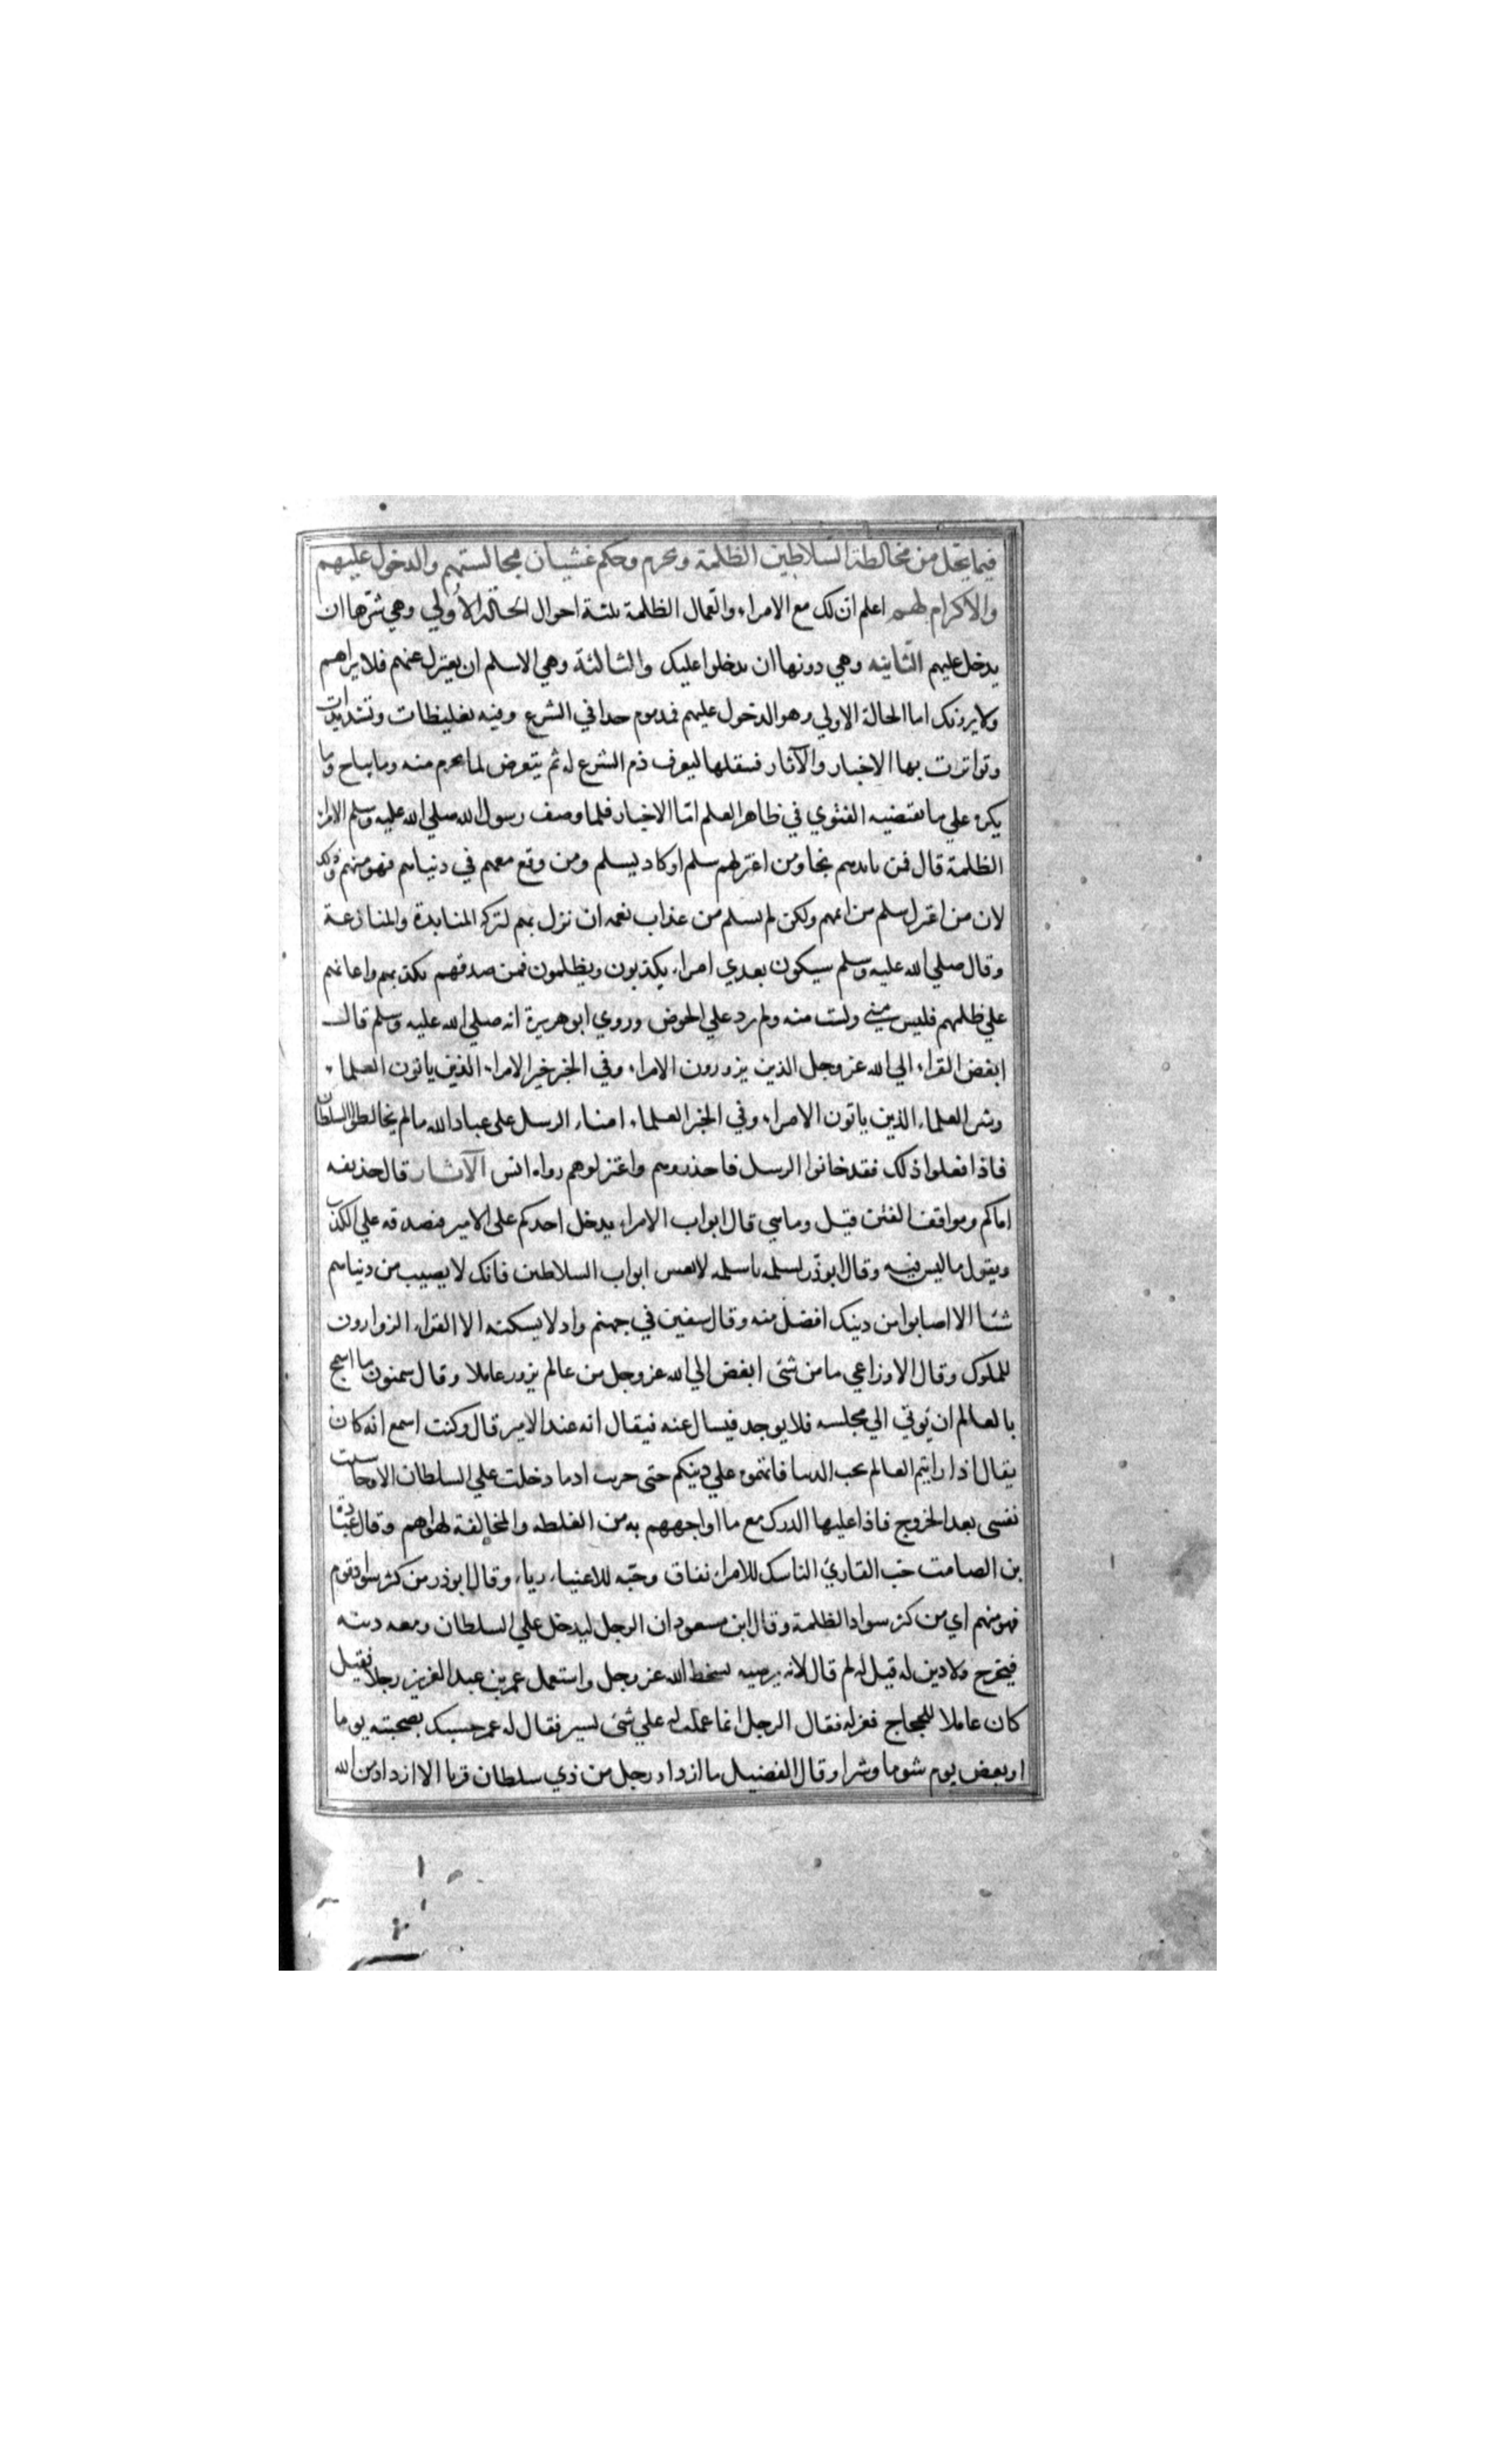 فيما يحل من مخالطة السلاطين الظلمة ويحرم وحكم غشيان مجالستهم والدخول عليهم
والاكرام لهم اعلم ان لك مع الامراء والعمال الظلمة ثلثة احوال الحالة الاولي وهي شرها ان
يدخل عليهم الثانيه وهي دونها ان يدخلوا عليك والثالثة وهي الاسلم ان يعتزل عنهم فلا يراهم
ولا يرونك اما الحالة الاولي وهو الدخول عليهم فمذموم جدا في الشرع وفيه تغليظات وتشديدات
وتواترت بها الاخبار والآثار فننقلها ليعرف ذم الشرع له ثم يتعرض لما يحرم منه وما يباح وما
يكره علي ما تقتضيه الفتوي في ظاهر العلم اما الاخبار فلما وصف رسول الله صلي الله عليه وسلم الامراء
الظلمة قال فمن نابذهم نجا ومن اعتزلهم سلم او كاد يسلم ومن وقع معهم في دنياهم فهو منهم وذلك
لان من اعتزل سلم من اثمهم ولكن لم يسلم من عذاب نعمه ان نزل بهم لتركه المنابذة والمنازعة
وقال صلي الله عليه وسلم سيكون بعدي امراء يكذبون ويظلمون فمن صدقهم بكذبهم واعانهم
علي ظلمهم فليس مني ولست منه ولم يرد علي الحوض وروي ابو هريرة انه صلي الله عليه وسلم قال
ابغض القراء الي الله عز وجل الذين يزورون الامراء وفي الخبر خير الامراء الذين ياتون العلماء
وشر العلماء الذين ياتون الامراء وفي الخبر العلماء امناء الرسل علي عباد الله ما لم يخالطوا السلطان
فاذا فعلوا ذلك فقد خانوا الرسل فاحذروهم واعتزلوهم رواه انس الآثار قال حذيفه
اماكم ومواقف الفتن قيل وما هي قال ابواب الامراء يدخل احدكم علي الامير فيصدقه علي الكذب
ويقول ما ليس فيه وقال ابو ذر لسلمه يا سلمه لا تغش ابواب السلاطين فانك لا يصيب من دنياهم
شيئا الا اصابوا من دينك افضل منه وقال سفين في جهنم واد لا يسكنه الا القراء الزوارون
للملوك وقال الاوزاعي ما من شئ ابغض الي الله عز وجل من عالم يزور عاملا وقال سمنون ما اسمج
بالعالم ان يوتي الي مجلسه فلا يوجد فيسال عنه فيقال انه عند الامير قال وكنت اسمع انه كان
يقال اذا رايتم العالم يحب الدنيا فاتهموه علي دينكم حتي جربت اذ ما دخلت علي السلطان الا وحاسبت
نفسي بعد الخروج فاذا عليها الدرك مع ما اواجههم به من الغلظه والمخالفة لهواهم وقال عبادة
بن الصامت حب القاري الناسك للامراء نفاق وحبه للاغنياء رياء وقال ابو ذر من كثر سواد قوم
فهو منهم اي من كثر سواد الظلمة وقال ابن مسعود ان الرجل ليدخل علي السلطان ومعه دينه
فيخرج ولا دين له قيل له لم قال لانه يرضيه بسخط الله عز وجل واستعمل عمر بن عبد العزيز رجلا فقيل
كان عاملا للحجاج فعزله فقال الرجل انما عملت له علي شئ يسير فقال له عمر حسبك بصحبته يوما
او بعض يوم شوما وشرا وقال الفضيل ما ازداد رجل من ذي سلطان قربا الا ازداد من الله